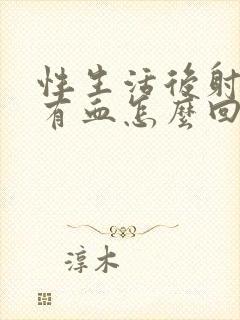 性生活後射
有血怎麼回
淳木